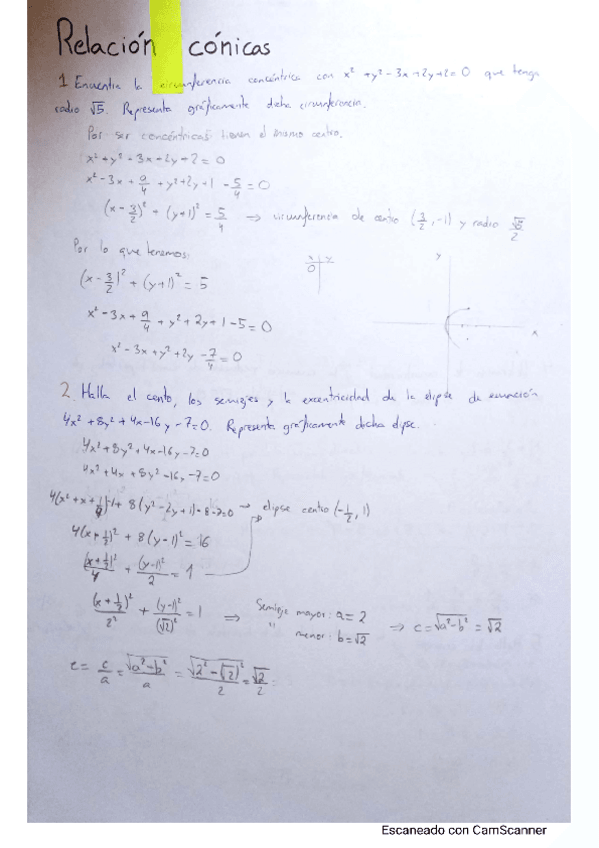 Relación cónicas
1 Encuentra la circunferencia concéntrica con x² + y² - 3x + 2y + 2 = 0 que tenga
radio √5. Representa gráficamente dicha circunferencia.
Por ser concéntricas tienen el mismo centro.
x² + y² - 3x + 2y + 2 = 0
x² - 3x + 9/4 + y² + 2y + 1 - 5/4 = 0
(x - 3/2)² + (y+1)² = 5/4 → circunferencia de centro (3/2, -1) y radio √5/2
Por lo que tenemos:
(x - 3/2)² + (y+1)² = 5
x² - 3x + 9/4 + y² + 2y + 1 - 5 = 0
x² - 3x + y² + 2y - 7/4 = 0
y
x
0
x
2. Halla el centro, los semiejes y la excentricidad de la elipse de ecuación
4x² + 8y² + 4x - 16y - 7 = 0. Representa gráficamente dicha elipse.
4x² + 8y² + 4x - 16y - 7 = 0
4x² + 4x + 8y² - 16y - 7 = 0
4(x² + x + 1/4) - 1 + 8(y² - 2y + 1) - 8 - 7 = 0 → elipse centro (-1/2, 1)
4(x + 1/2)² + 8(y - 1)² = 16
(x + 1/2)²/4 + (y-1)²/2 = 1
(x + 1/2)²/2² + (y-1)²/(√2)² = 1 ⇒ Semieje mayor: a = 2
" menor: b = √2 ⇒ c = √a² - b² = √2
e = c/a = √a² - b²/a = √2² - (√2)²/2 = √2/2
Escaneado con CamScanner